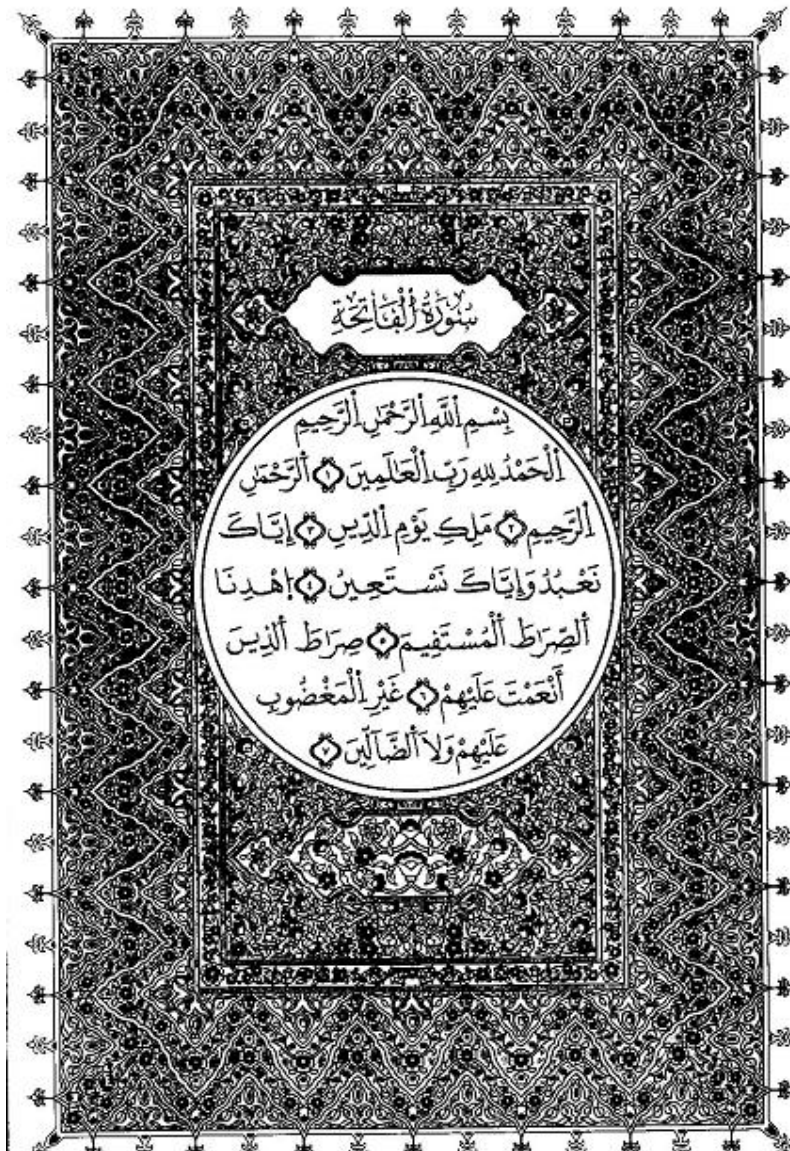 سُورَةُ اُ۬لْفَاتِحَةِ
بِسْمِ اِ۬للَّهِ اِ۬لرَّحْمَٰنِ اِ۬لرَّحِيمِ
اِ۬لْحَمْدُ لِلهِ رَبِّ اِ۬لْعَٰلَمِينَ ١ اَ۬لرَّحْمَٰنِ
اِ۬لرَّحِيمِ ٢ مَلِكِ يَوْمِ اِ۬لدِّينِ ٣ إِيَّاكَ
نَعْبُدُ وَإِيَّاكَ نَسْتَعِينُ ٤ اِ۪هْدِنَا
اَ۬لصِّرَٰطَ اَ۬لْمُسْتَفِيمَ ٥ صِرَٰطَ اَ۬لذِينَ
أَنْعَمْتَ عَلَيْهِمْ ٦ غَيْرِ اِ۬لْمَغْضُوبِ
عَلَيْهِمْ وَلَا اَ۬لضَّآلِّينَ ٧